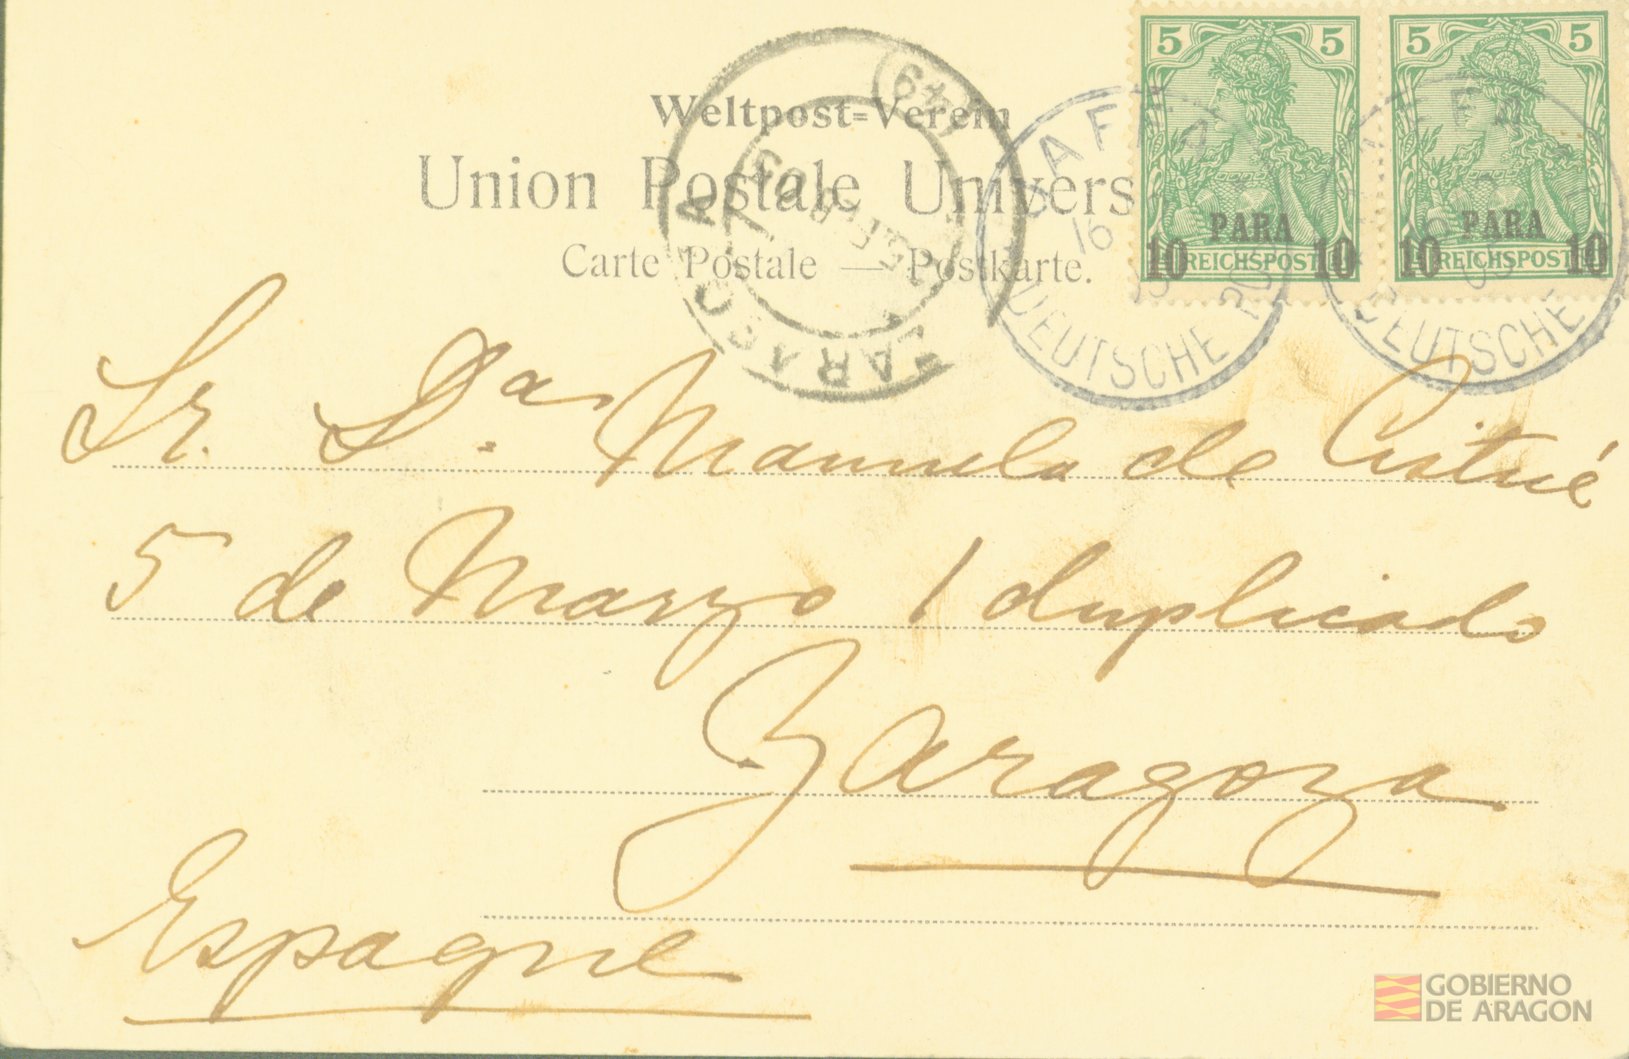 Weltpost=Verein
Union Postale Univers
Carte Postale — Postkarte.
5 5
PARA
10 10
REICHSPOST
5 5
PARA
10 10
REICHSPOST
JAFFA
16
DEUTSCHE
JAFFA
DEUTSCHE
ZARAGOZA
Sr. D.ª Manuela de Cistué
5 de Marzo 1 duplicado
Zaragoza
Espagne
GOBIERNO
DE ARAGON